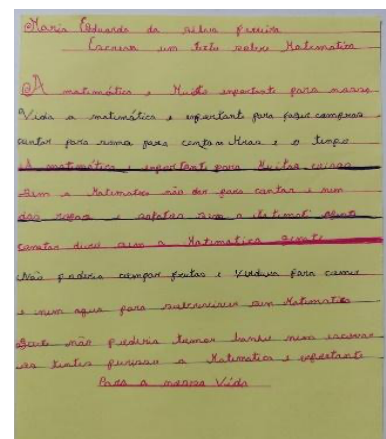 Maria Eduarda da silva pereira
Escreva um texto sobre Matematica
A matemática e Muito importante para nossa
Vida a matemática e importante para fazer compras
contar para soma para contar Hras e o tempo
A matemática e importante para Muitas coisas
Sem a Matematica não der para contar e nem
das roupas e sapatos sem a Matemati
contar sem a Matematica gente
Não poderia compar frutas e Virdura para comer
e nem agua para sem Matematica
não poderia tomar banho nem escovar
os dentes a Matematica e
Para a nossa Vida